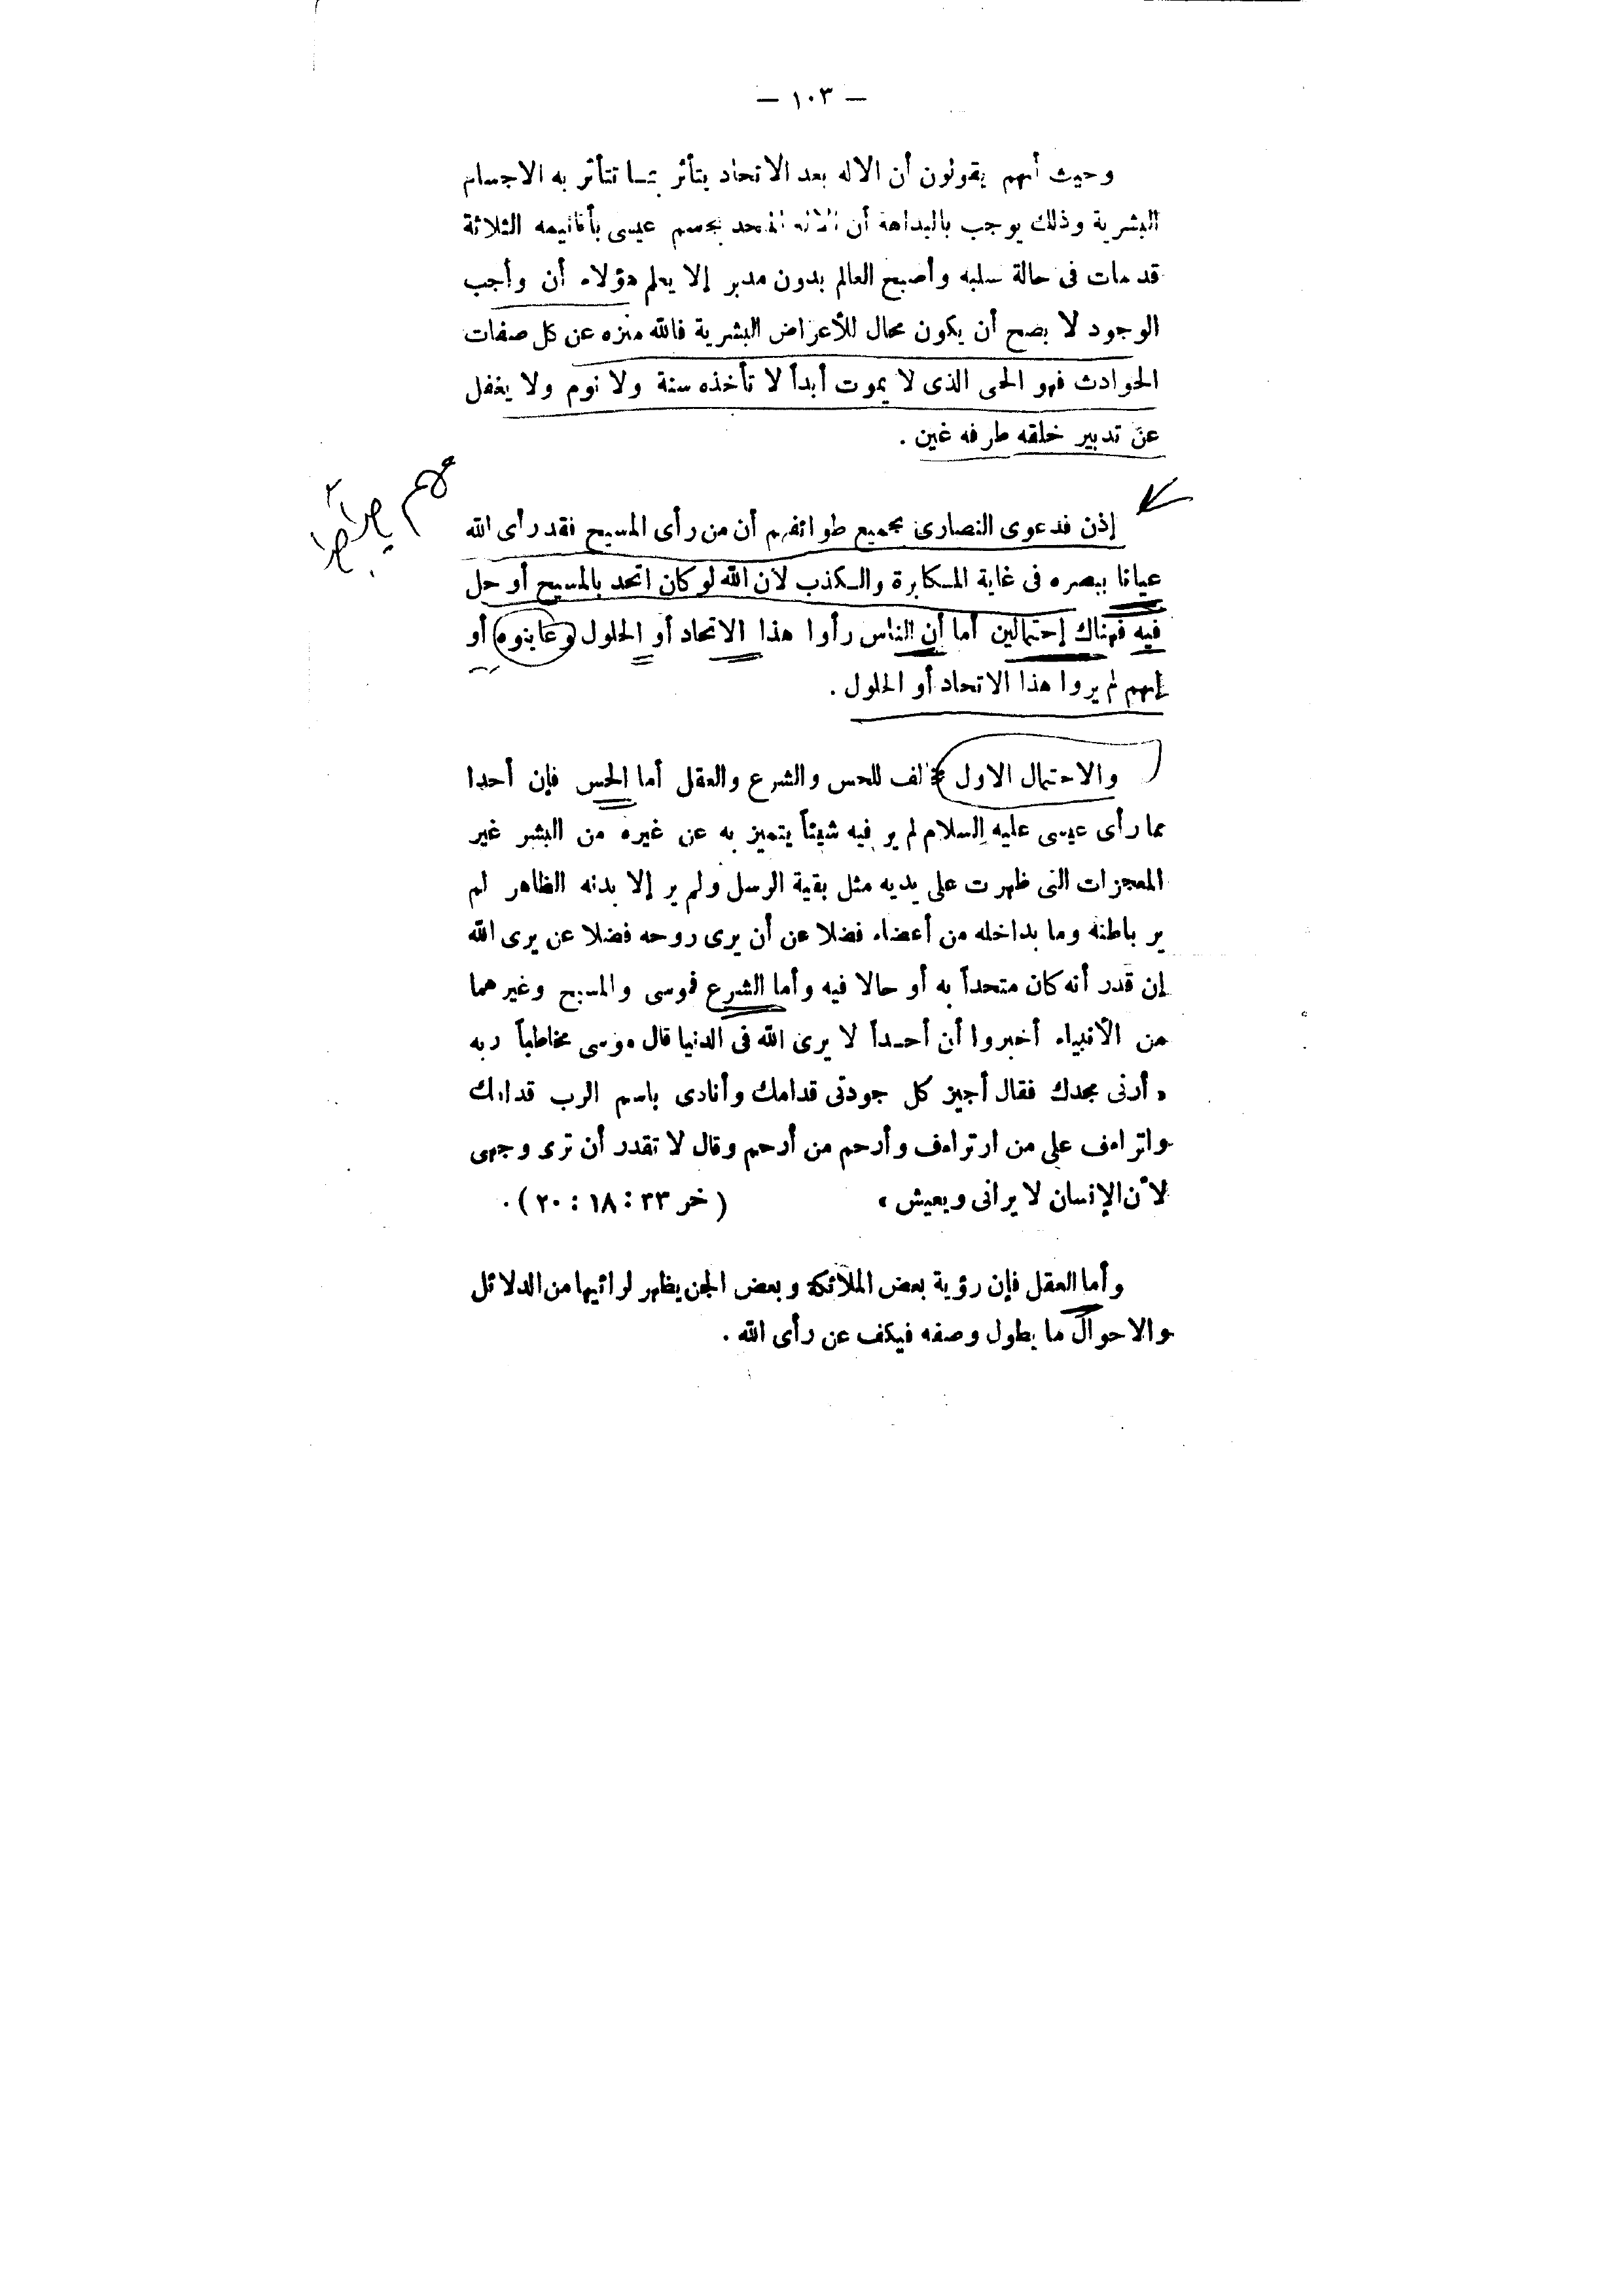 — ١٠٣ —
وحيث أنهم يقولون أن الاله بعد الاتحاد يتأثر بما تتأثر به الاجسام
البشرية وذلك يوجب بالبداهة أن الاله المتحد بجسم عيسى بأقانيمه الثلاثة
قد مات فى حالة سلبه وأصبح العالم بدون مدبر إلا يعلم هؤلاء أن وأجب
الوجود لا يصح أن يكون محال للأعراض البشرية فالله منزه عن كل صفات
الحوادث فهو الحى الذى لا يموت أبداً لا تأخذه سنة ولا نوم ولا يغفل
عن تدبير خلقه طرفه غين .
إذن فدعوى النصارى بجميع طوائفهم أن من رأى المسيح فقد رأى الله
عيانا ببصره فى غاية المكابرة والكذب لان الله لو كان اتحد بالمسيح أو حل
فيه فهناك إحتمالين أما أن الناس رأوا هذا الاتحاد أو الحلول وعاينوه أو
إنهم لم يروا هذا الاتحاد أو الحلول .
مهم جداً جداً
والاحتمال الاول مخالف للحس والشرع والعقل أما الحس فإن أحدا
مما رأى عيسى عليه السلام لم ير فيه شيئاً يتميز به عن غيره من البشر غير
المعجزات التى ظهرت على يديه مثل بقية الرسل ولم ير إلا بدنه الظاهر لم
ير باطنه وما بداخله من أعضاء فضلا عن أن يرى روحه فضلا عن يرى الله
إن قدر أنه كان متحداً به أو حالا فيه وأما الشرع فموسى والمسيح وغيرهما
من الأنبياء أخبروا أن أحداً لا يرى الله فى الدنيا قال موسى مخاطباً ربه
« أرنى مجدك فقال أجيز كل جودتى قدامك وأنادى باسم الرب قدامك
واتراءف على من ارتراءف وأرحم من أرحم وقال لا تقدر أن ترى وجهى
لأن الإنسان لا يرانى ويعيش » ( خر ٣٣ : ١٨ : ٢٠ ) .
وأما العقل فإن رؤية بعض الملائكة وبعض الجن يظهر لرائيها من الدلائل
والاحوال ما يطول وصفه فيكف عن رأى الله .